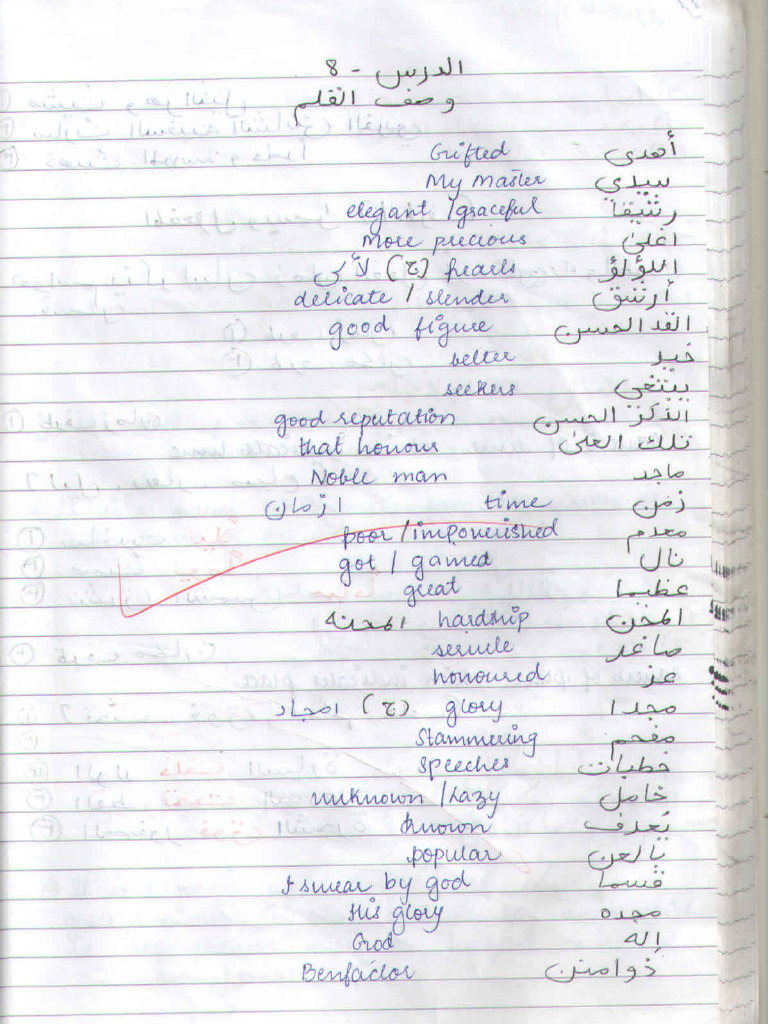 الدرس - 8
وصف القلم
أهدى Grifted
سيدي My Master
رشيقا elegant / graceful
اغلى More precious
اللؤلؤ pearls (ج) لآلى
أرشق delicate / slender
القد الحسن good figure
خير better
يبتغي seekers
الذكر الحسن good reputation
تلك العلى that honour
ماجد Noble man
زمن time ازمان
معدم poor / impoverished
نال got / gained
عظيما great
المحن hardship المحنة
صاغر servile
عز honoured
مجدا glory (ج) امجاد
مفحم Stammering
خطبات speeches
خامل unknown / Lazy
يُعرف known
بالعلن popular
قسما I swear by god
مجده His glory
إله God
ذوامنن Benfactor